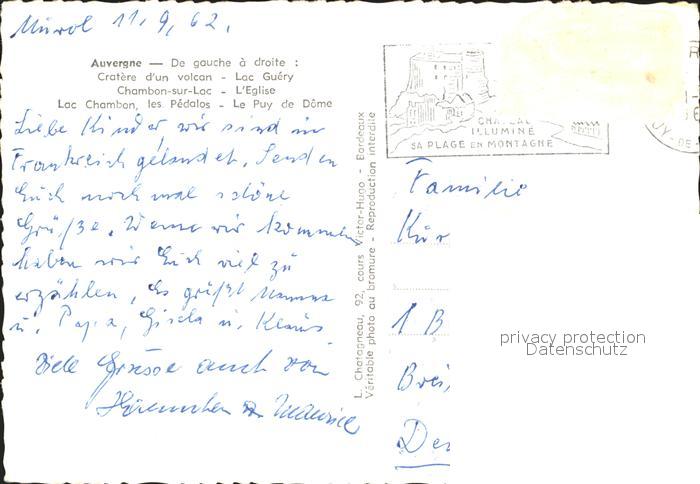 Murol 11.9.62.
Auvergne — De gauche à droite :
Cratère d'un volcan - Lac Guéry
Chambon-sur-Lac - L'Eglise
Lac Chambon, les Pédalos - Le Puy de Dôme
Liebe Kinder, wir sind in
Frankreich gelandet. Senden
Euch noch mal schöne
Grüße. Wenn wir kommen
haben wir Euch viel zu
erzählen, Es grüßt Mama
u. Papa, Gisela u. Klaus
Viele Grüsse auch von
L. Chatagneau, 92, cours Victor-Hugo - Bordeaux
Véritable photo au bromure - Reproduction interdite
CHATEAU
ILLUMINÉ
SA PLAGE EN MONTAGNE
Familie
1 B
privacy protection
Datenschutz